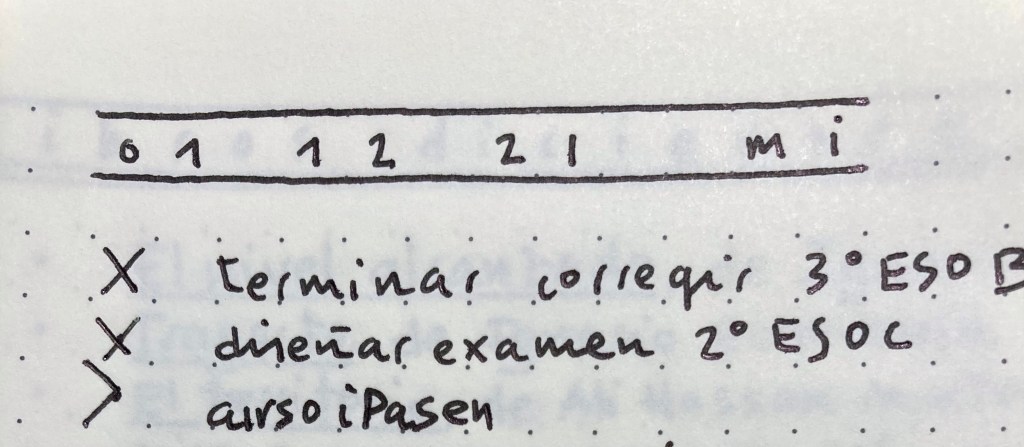 01 12 21 mi
X terminar corregir 3º ESO B
X diseñar examen 2º ESO C
> curso iPasen